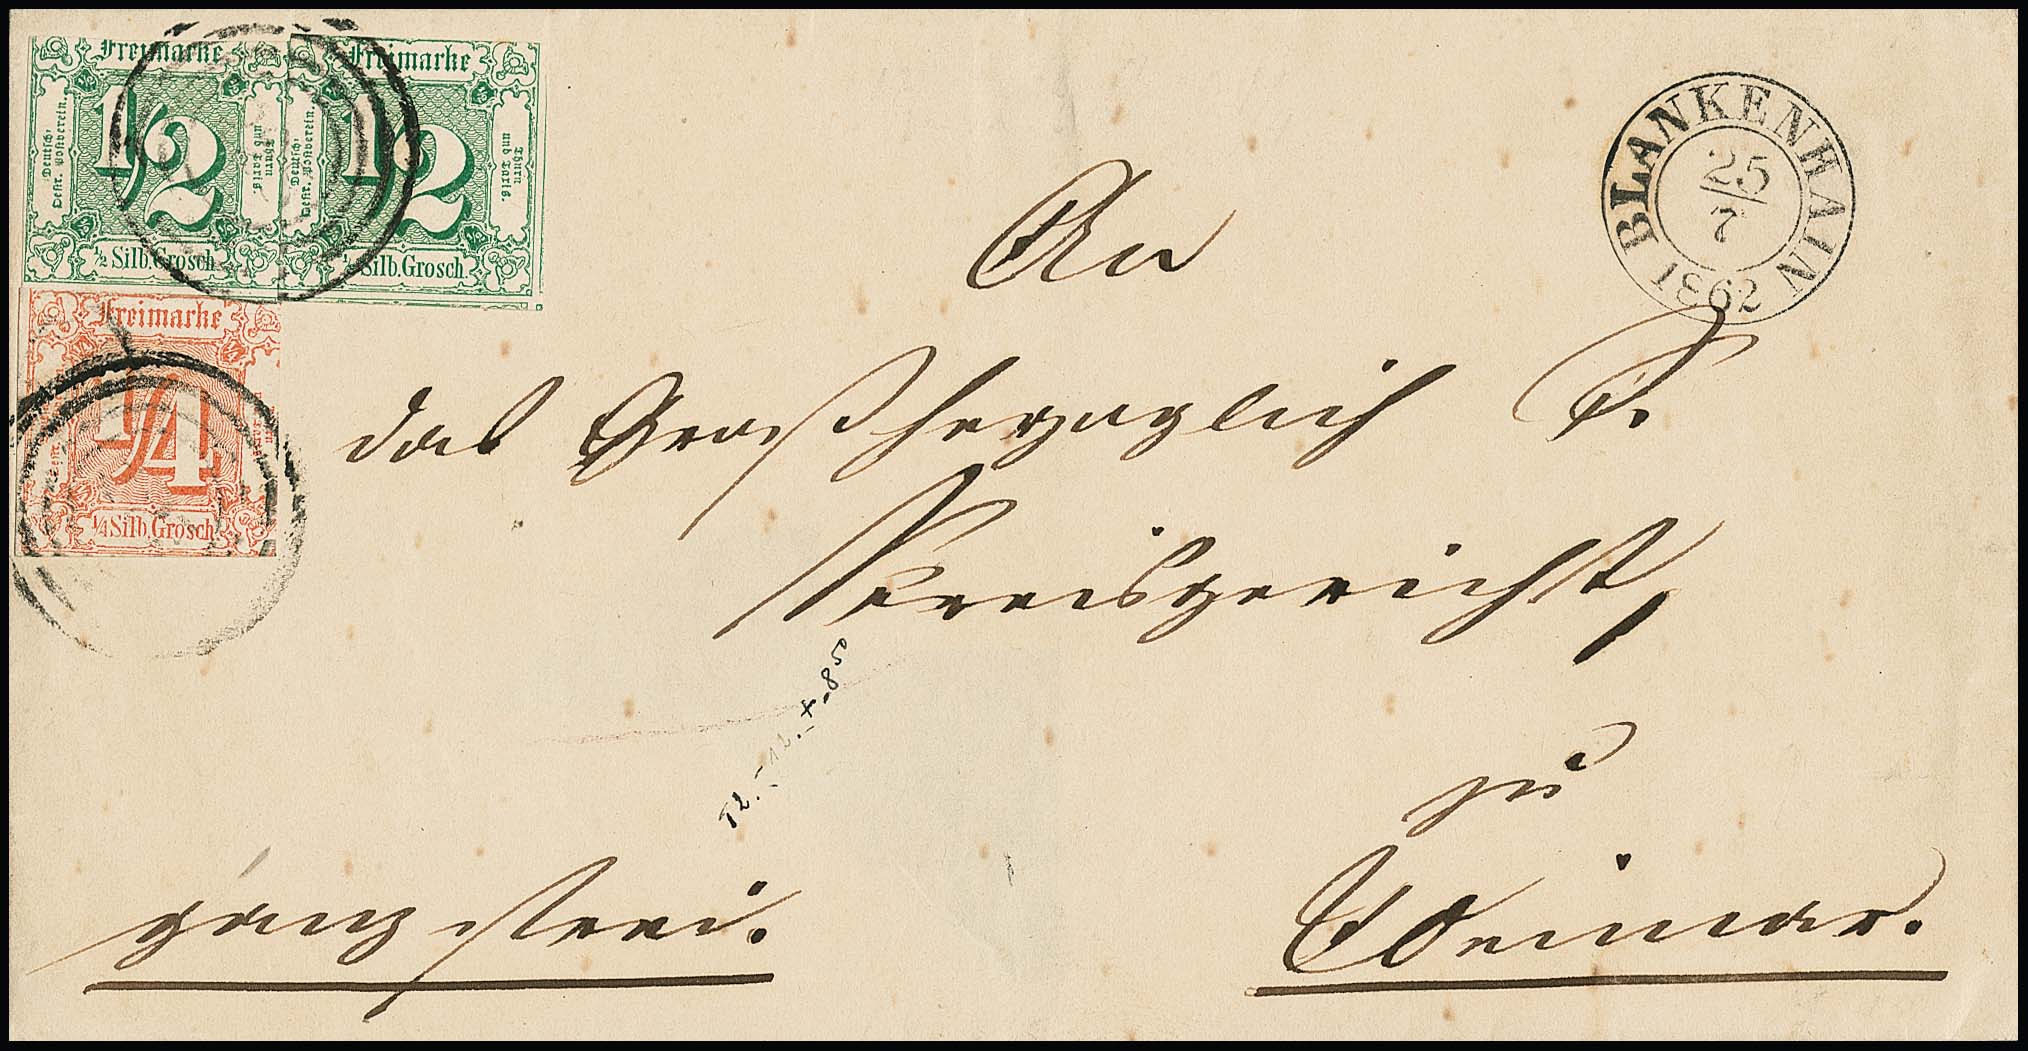 Freimarke
1/2
Deutsch-
Oestr. Postverein.
Thurn
und Taxis.
1/2 Silb. Grosch.
Freimarke
1/2
Deutsch-
Oestr. Postverein.
Thurn
und Taxis.
1/2 Silb. Grosch.
Freimarke
1/4
1/4 Silb. Grosch.
BLANKENHAIN
25
7
1862
An
das Großherzoglich S.
Kreisgericht,
zu
Weimar.
ganz frei.